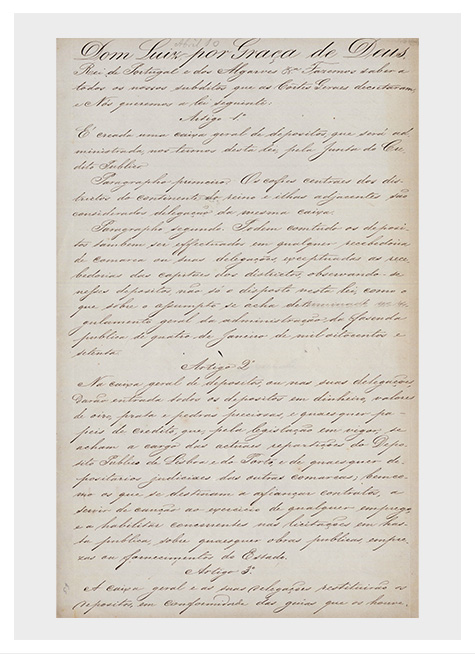 Dom Luiz por Graça de Deus,
Rei de Portugal e dos Algarves &ª Fazemos saber a
todos os nossos subditos que as Côrtes Geraes decretaram
e Nós queremos a lei seguinte:
Artigo 1º
É creada uma caixa geral de depositos, que será ad-
ministrada, nos termos desta lei, pela Junta do Cre-
dito Publico.
Paragrapho primeiro. Os cofres centraes dos dis-
trictos do continente do reino e ilhas adjacentes são
considerados delegação da mesma caixa.
Paragrapho segundo. Podem comtudo os deposi-
tos tambem ser effectuados em qualquer recebedoria
de comarca ou suas delegações, exceptuadas as rece-
bedorias das capitaes dos districtos, observando-se
nesses depositos não só o disposto nesta lei, como o
que sobre o assumpto se acha determinado no re-
gulamento geral da administração da fazenda
publica de quatro de Janeiro de mil oitocentos e
setenta.
Artigo 2º
Na caixa geral de depositos, ou nas suas delegações,
darão entrada todos os depositos em dinheiro, valores
de oiro, prata e pedras preciosas, e quaesquer pa-
peis de credito, que, pela legislação em vigor, se
acham a cargo das actuaes repartições do Depo-
sito Publico de Lisboa e do Porto, e de quaesquer de-
positarios judiciaes das outras comarcas, bem co-
mo os que se destinam a afiançar contratos, a
servir de caução ao exercicio de qualquer emprego,
e a habilitar concorrentes nas licitações em has-
ta publica, sobre quaesquer obras publicas, empre-
zas ou fornecimentos do Estado.
Artigo 3º
A caixa geral e as suas delegações restituirão os
depositos, em conformidade das guias que os houve-